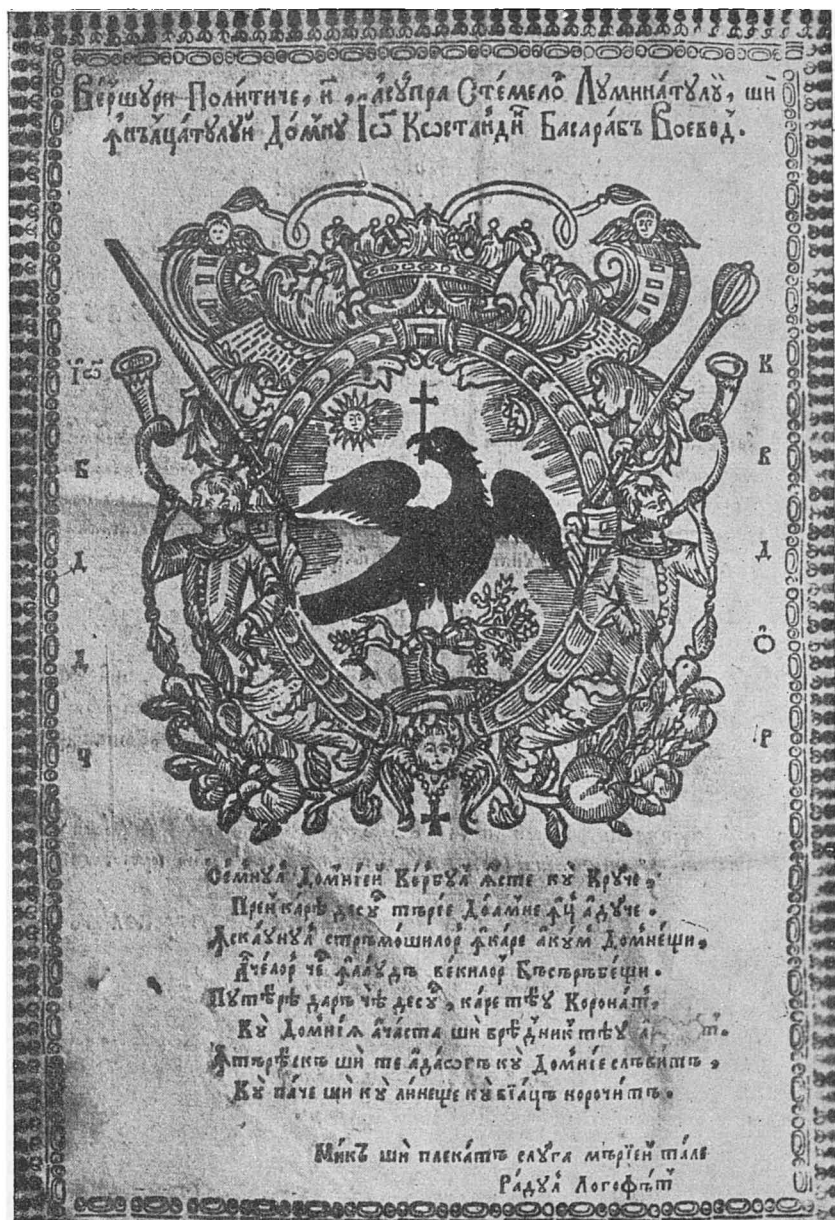 Ве́ршури Поли́тиче, н҃ , а҆су́пра Сте́мело Лумина́тулꙋй, шѝ
ꙟнълца́тулуй До́мну І҆ѡ҃ Кѡстанді́н Басара́бъ Воево́д.
І҆ѡ҃ К
Б В
Д Д
Д Ѻ҆
Ч Р
Се́мнул До́мнїей Ко́рбул ꙗ҆́сте кꙋ̀ Крꙋ́че,
Прен ка́рѣ десꙋ́с търіе До́амне ꙟ҆ц а҆дꙋ́че.
ꙟ҆скаꙋнул стръмо́шилор ꙟ҆каре а҆кꙋ́м Домне́щи,
А҆че́лор че ꙟ҆ла́ꙋдъ ве́килор Бъсъръбе́щи.
Пꙋтѣ́рѣ даръ чѣ десꙋ́с, каре тѣ́ꙋ Корона́т,
Кꙋ̀ Домнїѧ а҆ча́ста шѝ врѣ́дник тѣ́ꙋ
ꙟ҆търѣ́скъ шѝ те а҆даѡгъ кꙋ̀ Домнїе слъви́тъ,
Кꙋ̀ па́че шѝ кꙋ̀ ли́неще кꙋ̀ вїа́цъ норочи́тъ.
Мик шѝ плека́тъ слꙋ́га мърїей та́ле
Ра́дул Логофъ́т